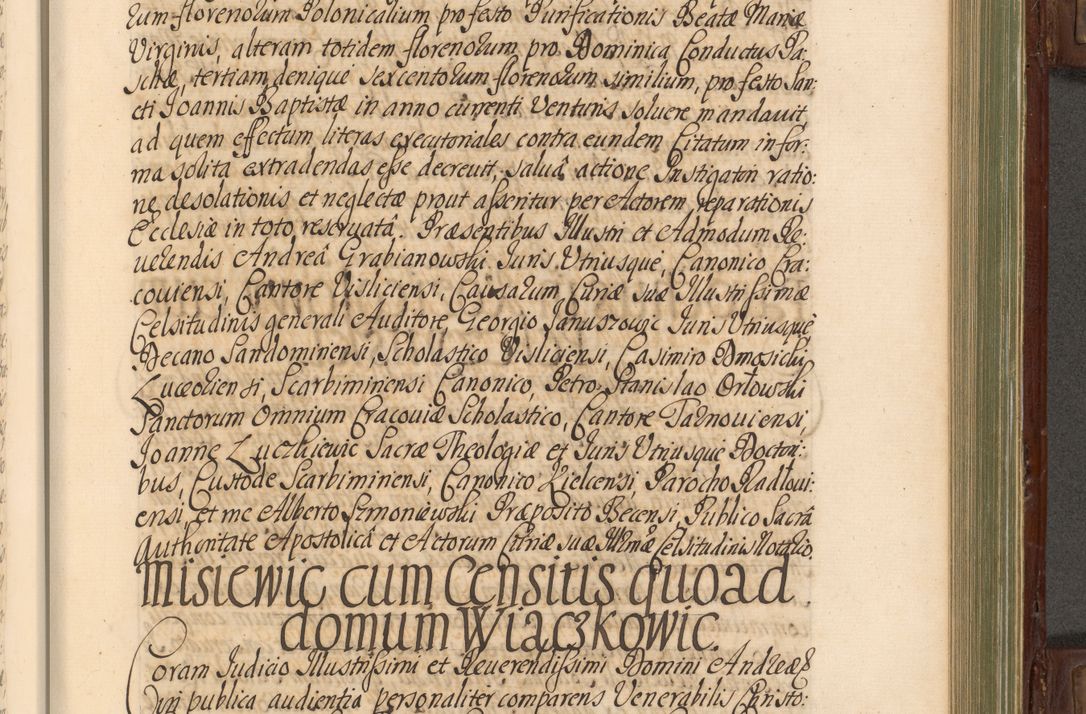 rum florenorum Polonicalium pro festo Purificationis Beatæ Mariæ
Virginis, alteram totidem florenorum pro Dominica Conductus Pa:
schæ, tertiam denique sexcentorum florenorum similium, pro festo San:
cti Joannis Baptistæ in anno currenti venturis solvere mandavit,
ad quem effectum literas executoriales contra eundem Citatum in for:
ma solita extradendas esse decrevit, salvâ actione Instigatori ratio:
ne desolationis et neglectæ prout asseritur per Actorem reparationis
Ecclesiæ in toto reservatâ. Præsentibus Illustri et Admodum Re:
verendis Andreâ Grabianowski Juris Utriusque, Canonico Cra:
coviensi, Cantore Visliciensi, Causarum Curiæ suæ Illustrissimæ
Celsitudinis generali Auditore, Georgio Januszowic Juris Utriusque
Decano Sandomiriensi, Scholastico Visliciensi, Casimiro Dmosicki
Luceoriensi, Scarbimiriensi Canonico, Petro Stanislao Orłowski
Sanctorum Omnium Cracoviæ Scholastico, Cantore Tarnoviensi,
Joanne Luczkiewic Sacræ Theologiæ et Juris Utriusque Doctori:
bus, Custode Scarbimiriensi, Canonico Kielcensi, Parocho Radłovi:
ensi, et me Alberto Szmoniewski Præposito Becensi, Publico Sacrâ
Authoritate Apostolicâ et Actorum Curiæ suæ Illmæ Celsitudinis Notario.
Misiewic cum Censitis quoad
domum Wiaczkowic.
Coram Judicio Illustrissimi et Reverendissimi Domini Andreæ &
in publica audientia personaliter comparens Venerabilis Christo: